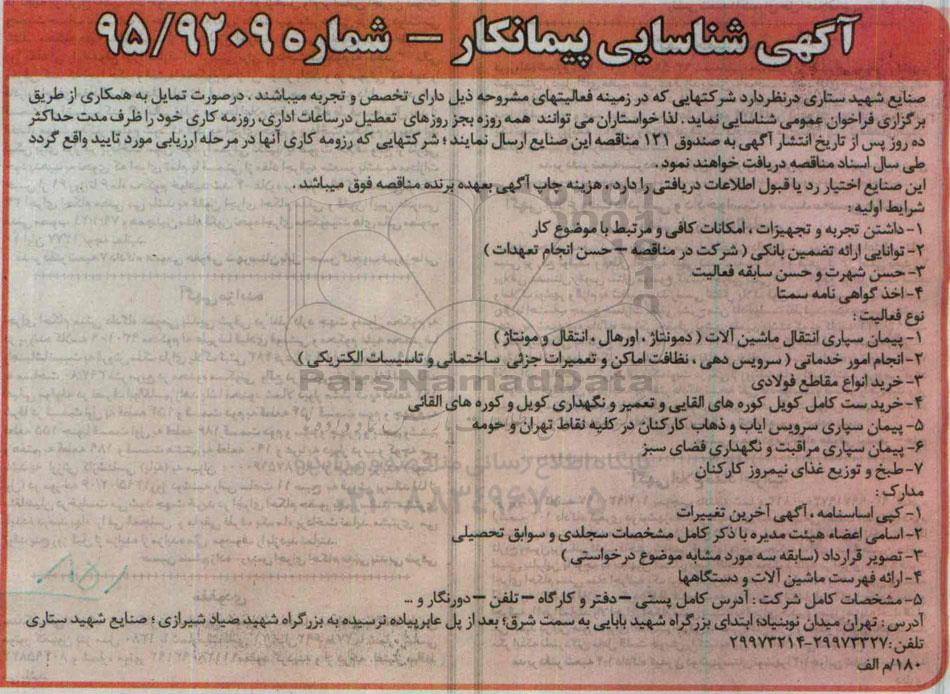 آگهی شناسایی پیمانکار – شماره ۹۵/۹۲۰۹
صنایع شهید ستاری درنظردارد شرکتهایی که در زمینه فعالیتهای مشروحه ذیل دارای تخصص و تجربه میباشند . درصورت تمایل به همکاری از طریق
برگزاری فراخوان عمومی شناسایی نماید . لذا خواستاران می توانند همه روزه بجز روزهای تعطیل درساعات اداری، روزمه کاری خود را ظرف مدت حداکثر
ده روز پس از تاریخ انتشار آگهی به صندوق ۱۲۱ مناقصه این صنایع ارسال نمایند ؛ شرکتهایی که رزومه کاری آنها در مرحله ارزیابی مورد تایید واقع گردد
طی سال اسناد مناقصه دریافت خواهند نمود .
این صنایع اختیار رد یا قبول اطلاعات دریافتی را دارد ، هزینه چاپ آگهی بعهده برنده مناقصه فوق میباشد .
شرایط اولیه :
۱- داشتن تجربه و تجهیزات ، امکانات کافی و مرتبط با موضوع کار
۲- توانایی ارائه تضمین بانکی ( شرکت در مناقصه – حسن انجام تعهدات )
۳- حسن شهرت و حسن سابقه فعالیت
۴- اخذ گواهی نامه سمتا
نوع فعالیت :
۱- پیمان سپاری انتقال ماشین آلات ( دمونتاژ ، اورهال ، انتقال و مونتاژ )
۲- انجام امور خدماتی ( سرویس دهی ، نظافت اماکن و تعمیرات جزئی ساختمانی و تاسیسات الکتریکی )
۳- خرید انواع مقاطع فولادی
۴- خرید ست کامل کویل کوره های القایی و تعمیر و نگهداری کویل و کوره های القائی
۵- پیمان سپاری سرویس ایاب و ذهاب کارکنان در کلیه نقاط تهران و حومه
۶- پیمان سپاری مراقبت و نگهداری فضای سبز
۷- طبخ و توزیع غذای نیمروز کارکنان
مدارک :
۱- کپی اساسنامه ، آگهی آخرین تغییرات
۲- اسامی اعضاء هیئت مدیره با ذکر کامل مشخصات سجلدی و سوابق تحصیلی
۳- تصویر قرارداد (سابقه سه مورد مشابه موضوع درخواستی )
۴- ارائه فهرست ماشین آلات و دستگاهها
۵- مشخصات کامل شرکت : آدرس کامل پستی – دفتر و کارگاه – تلفن – دورنگار و ...
آدرس : تهران میدان نوبنیاد؛ ابتدای بزرگراه شهید بابایی به سمت شرق؛ بعد از پل عابرپیاده نرسیده به بزرگراه شهید صیاد شیرازی ؛ صنایع شهید ستاری
تلفن: ۲۹۹۷۳۳۲۷-۲۹۹۷۳۲۱۴
۱۸۰/م الف
ParsNamadData